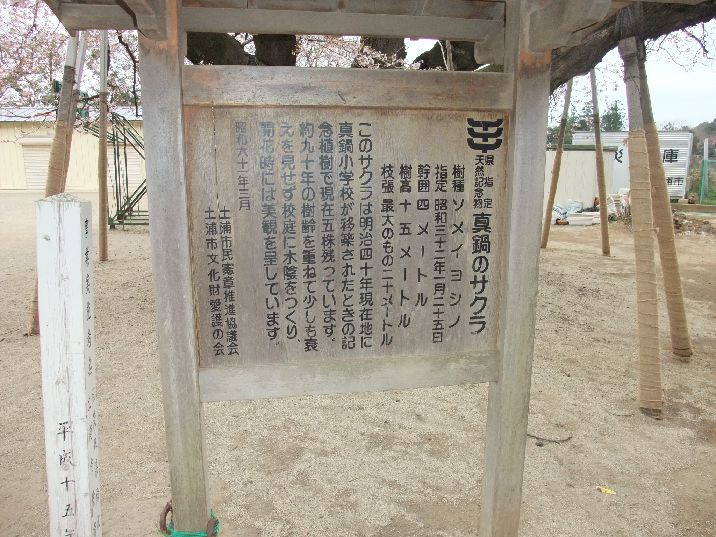 県指定
天然記念物
真鍋のサクラ
樹種 ソメイヨシノ
指定 昭和三十二年一月二十五日
幹囲四メートル
樹高十五メートル
枝張 最大のもの二十メートル
このサクラは明治四十年現在地に
真鍋小学校が移築されたときの記
念植樹で現在五株残っています。
約九十年の樹齢を重ねて少しも衰
えを見せず校庭に木陰をつくり、
開花時には美観を呈しています。
昭和六十二年三月
土浦市民憲章推進協議会
土浦市文化財愛護の会
平成十五年
庫